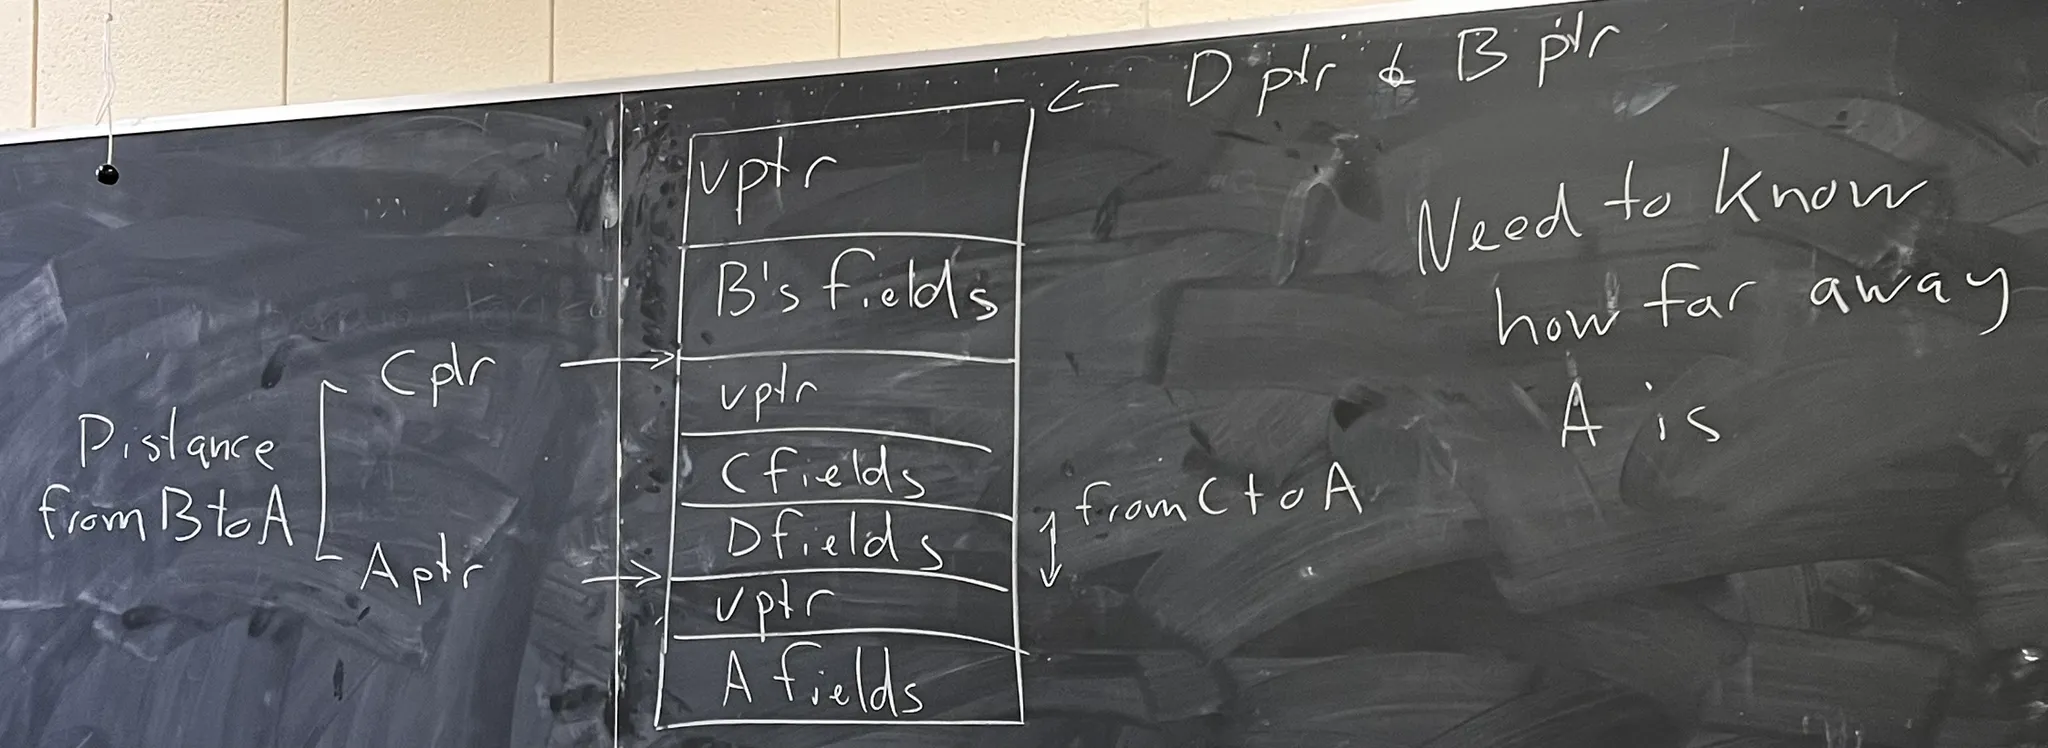 D ptr & B ptr
vptr
B's fields
vptr
C fields
D fields
vptr
A fields
C ptr
Distance
from B to A
A ptr
from C to A
Need to know
how far away
A is